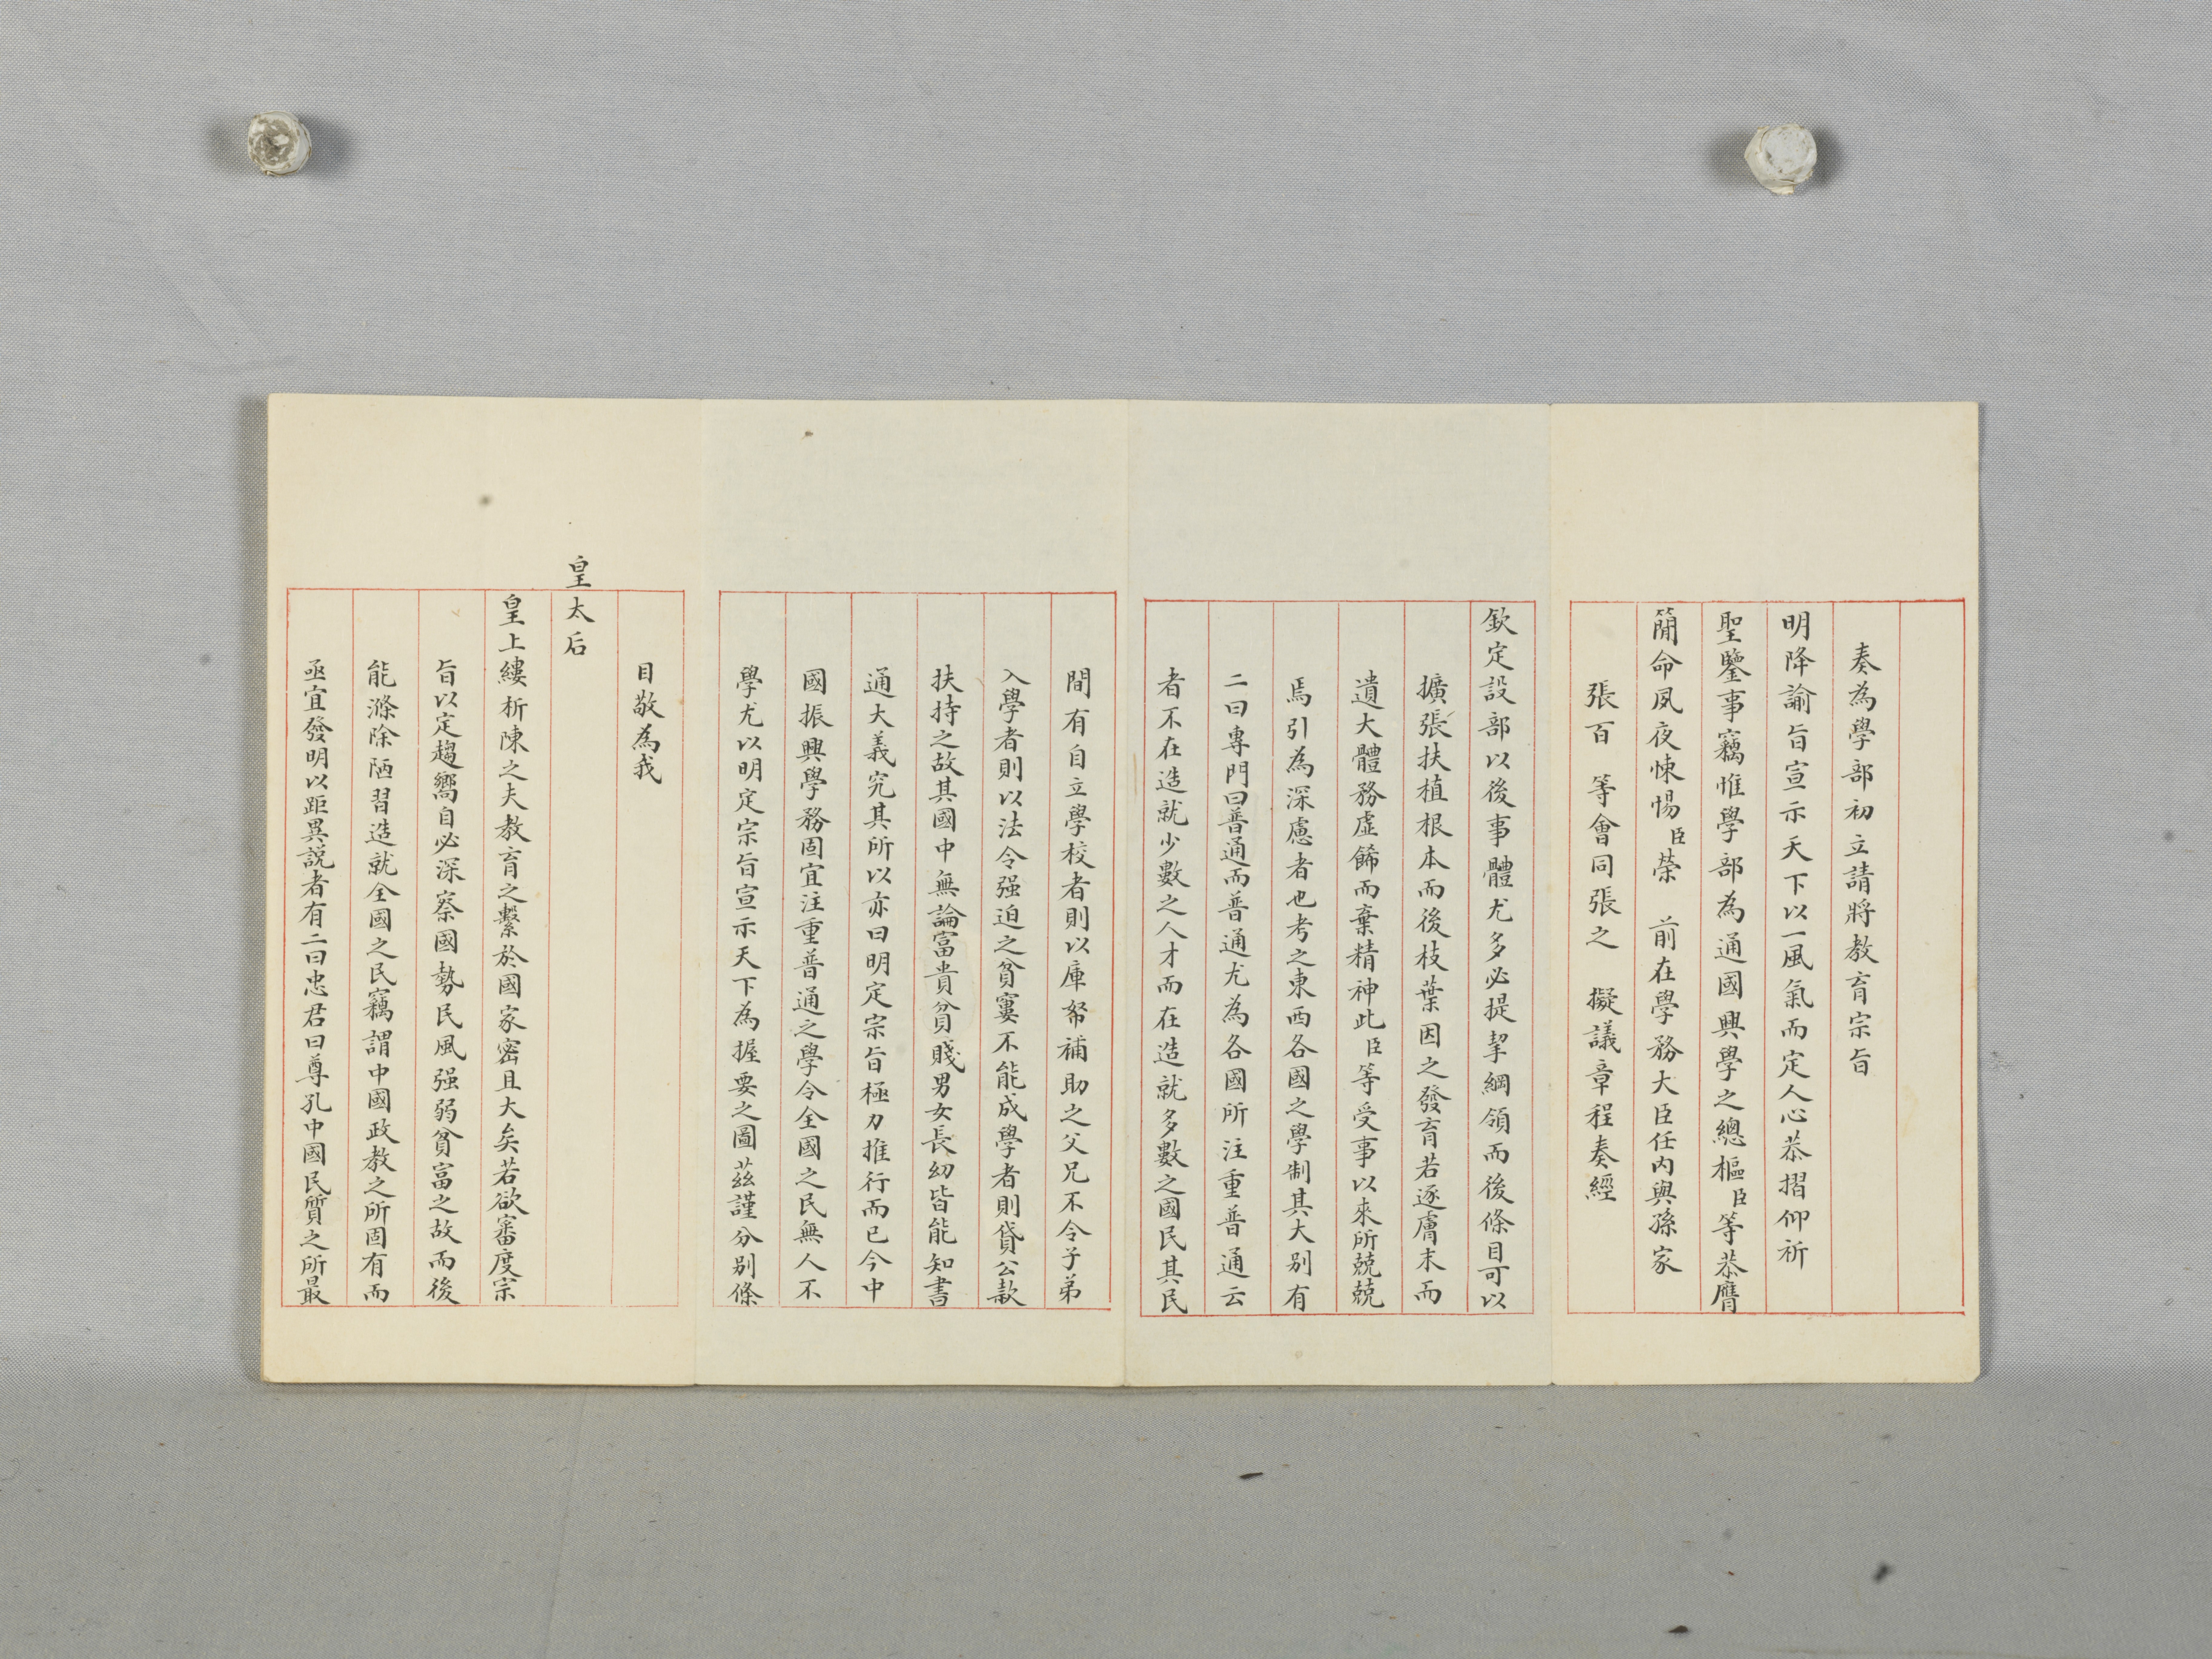 奏為學部初立請將教育宗旨
明降諭旨宣示天下以一風氣而定人心恭摺仰祈
聖鑒事竊惟學部為通國興學之總樞臣等恭膺
簡命夙夜悚惕臣榮 前在學務大臣任內與孫家
張百 等會同張之 擬議章程奏經
欽定設部以後事體尤多必提挈綱領而後條目可以
擴張扶植根本而後枝葉因之發育若逐膚末而
遺大體務虛餙而棄精神此臣等受事以來所兢兢
焉引為深慮者也考之東西各國之學制其大別有
二曰專門曰普通而普通尤為各國所注重普通云
者不在造就少數之人才而在造就多數之國民其民
間有自立學校者則以庫帑補助之父兄不令子弟
入學者則以法令强迫之貧窶不能成學者則貸公款
扶持之故其國中無論富貴貧賤男女長幼皆能知書
通大義究其所以亦曰明定宗旨極力推行而已今中
國振興學務固宜注重普通之學令全國之民無人不
學尤以明定宗旨宣示天下為握要之圖茲謹分別條
目敬為我
皇太后
皇上縷析陳之夫教育之繫於國家密且大矣若欲審度宗
旨以定趨嚮自必深察國勢民風强弱貧富之故而後
能滌除陋習造就全國之民竊謂中國政教之所固有而
亟宜發明以距異說者有二曰忠君曰尊孔中國民質之所最